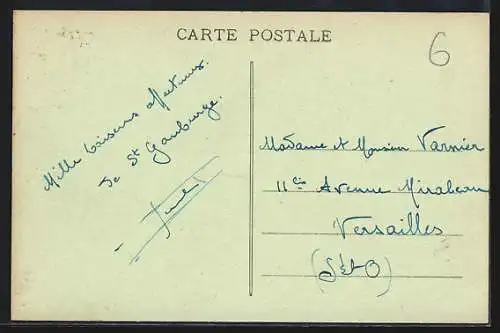 CARTE POSTALE
6
Mille baisers affectueux
de St Gauburge.
Madame et Monsieur Varnier
11bis Avenue Mirabeau
Versailles
(S et O)